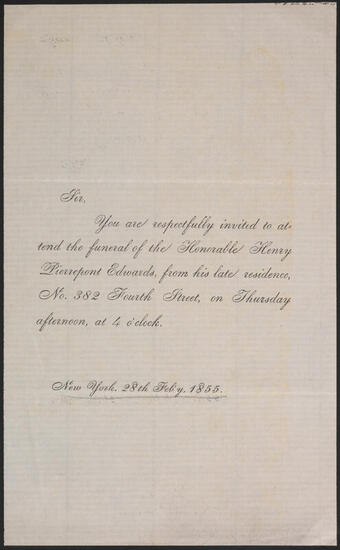 Sir,
You are respectfully invited to at-
tend the funeral of the Honorable Henry
Pierrepont Edwards, from his late residence,
No. 382 Fourth Street, on Thursday
afternoon, at 4 o'clock.
New York. 28th Feb'y. 1855.